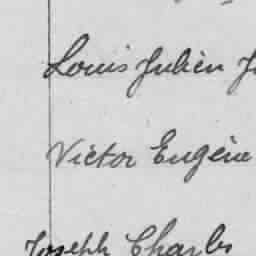 Louis Julien
Victor Eugène
Joseph Charles